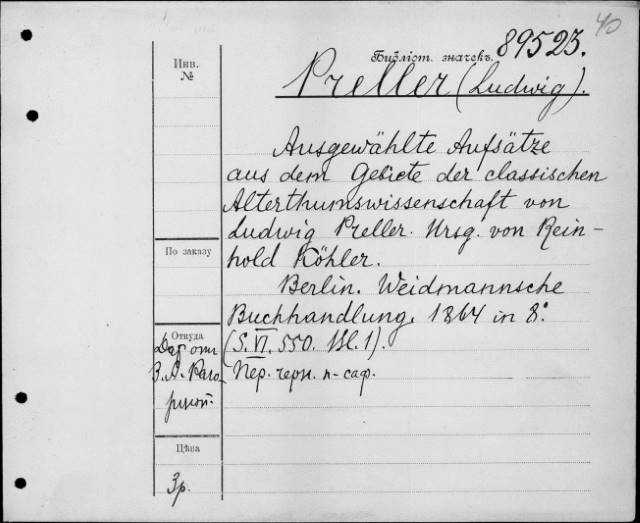 40
89523.
Библіот. значекъ.
Инв.
№
Preller (Ludwig).
Ausgewählte Aufsätze
aus dem Gebiete der classischen
Alterthumswissenschaft von
Ludwig Preller. Hrsg. von Rein-
hold Köhler.
По заказу
Berlin. Weidmannsche
Buchhandlung. 1864 in 8º.
Откуда
(S. VI. 550. Bl. 1).
Дар отъ
В. А. Раго-
Пер. черн. п-саф.
Цѣна
3 р.